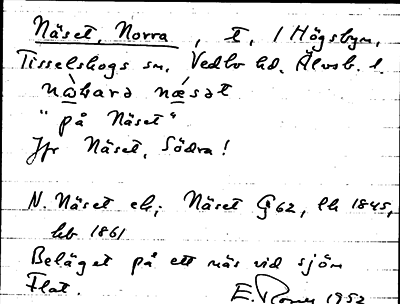 Näset, Norra, t, i Högsbyn,
Tisselskogs sn, Vedbo hd. Älvsb. l.
nò̱hara nǽ̱sət
"på Näset"
Jfr Näset, Södra!
N. Näset ek; Näset G 62, lh 1845,
hb 1861
Beläget på ett näs vid sjön
Flat. E. 1952